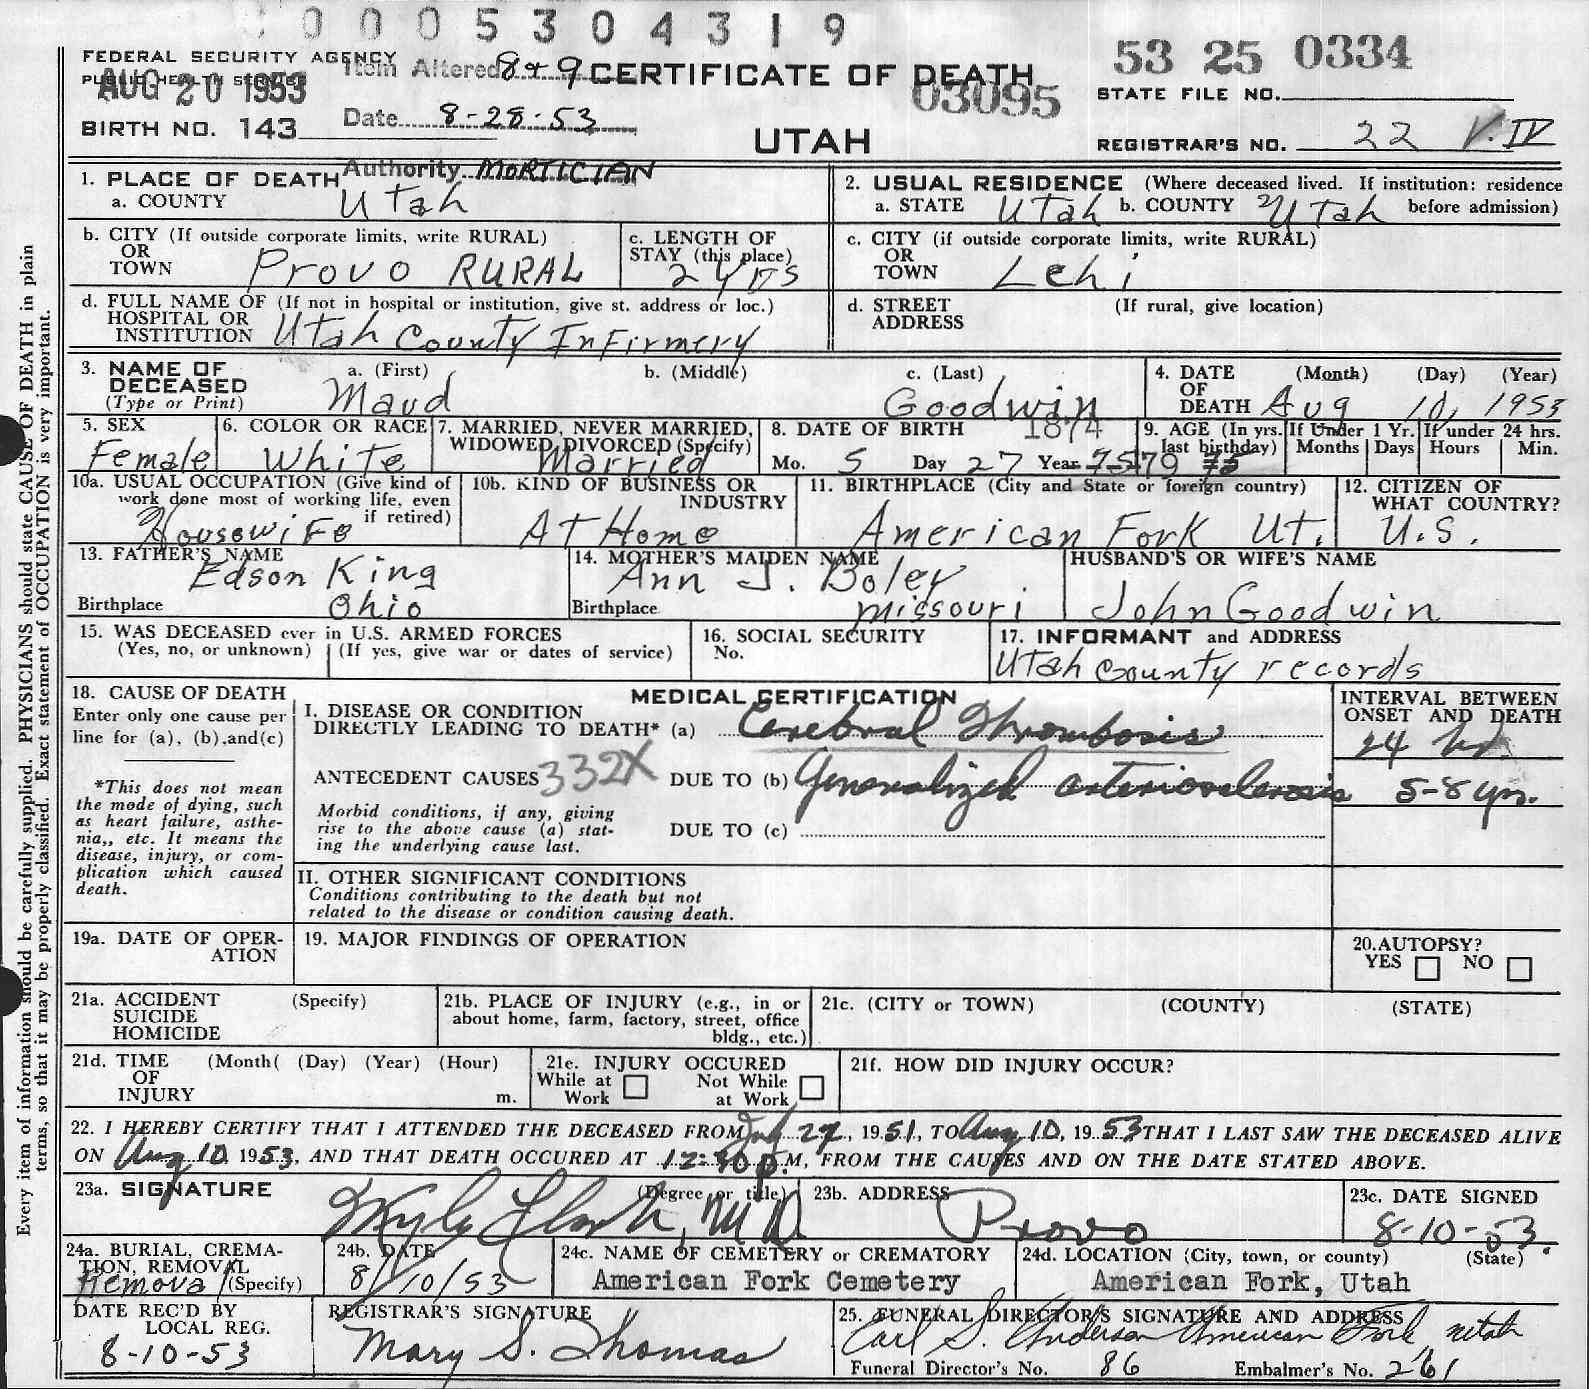 0005304319
FEDERAL SECURITY AGENCY
PUBLIC HEALTH SERVICE
AUG 20 1953
Item Altered 8 & 9
CERTIFICATE OF DEATH
03095
53 25 0334
STATE FILE NO.
BIRTH NO. 143
Date 8-28-53
UTAH
REGISTRAR'S NO. 22 V. IV
Authority MORTICIAN
1. PLACE OF DEATH
a. COUNTY Utah
2. USUAL RESIDENCE (Where deceased lived. If institution: residence before admission)
a. STATE Utah b. COUNTY Utah
b. CITY (If outside corporate limits, write RURAL)
OR
TOWN Provo RURAL
c. LENGTH OF
STAY (this place)
2 yrs
c. CITY (if outside corporate limits, write RURAL)
OR
TOWN Lehi
d. FULL NAME OF (If not in hospital or institution, give st. address or loc.)
HOSPITAL OR
INSTITUTION Utah County Infirmery
d. STREET (If rural, give location)
ADDRESS
3. NAME OF
DECEASED
(Type or Print)
a. (First) b. (Middle) c. (Last)
Maud Goodwin
4. DATE (Month) (Day) (Year)
OF
DEATH Aug 10, 1953
5. SEX
Female
6. COLOR OR RACE
White
7. MARRIED, NEVER MARRIED,
WIDOWED, DIVORCED (Specify)
Married
8. DATE OF BIRTH 1874
Mo. 5 Day 27 Year
9. AGE (In yrs.
last birthday)
79 75
If Under 1 Yr.
Months Days
If under 24 hrs.
Hours Min.
10a. USUAL OCCUPATION (Give kind of
work done most of working life, even
if retired)
Housewife
10b. KIND OF BUSINESS OR
INDUSTRY
At Home
11. BIRTHPLACE (City and State or foreign country)
American Fork Ut.
12. CITIZEN OF
WHAT COUNTRY?
U.S.
13. FATHER'S NAME
Edson King
Birthplace Ohio
14. MOTHER'S MAIDEN NAME
Ann J. Boley
Birthplace Missouri
HUSBAND'S OR WIFE'S NAME
John Goodwin
15. WAS DECEASED ever in U.S. ARMED FORCES
(Yes, no, or unknown) (If yes, give war or dates of service)
16. SOCIAL SECURITY
No.
17. INFORMANT and ADDRESS
Utah County records
18. CAUSE OF DEATH
Enter only one cause per
line for (a), (b), and (c)
*This does not mean
the mode of dying, such
as heart failure, asthe-
nia,, etc. It means the
disease, injury, or com-
plication which caused
death.
MEDICAL CERTIFICATION
I. DISEASE OR CONDITION
DIRECTLY LEADING TO DEATH* (a) Cerebral Thrombosis
ANTECEDENT CAUSES 332X DUE TO (b) Generalized arteriosclerosis
Morbid conditions, if any, giving
rise to the above cause (a) stat-
ing the underlying cause last.
DUE TO (c)
INTERVAL BETWEEN
ONSET AND DEATH
24 hr.
5-8 yrs.
II. OTHER SIGNIFICANT CONDITIONS
Conditions contributing to the death but not
related to the disease or condition causing death.
19a. DATE OF OPER-
ATION
19. MAJOR FINDINGS OF OPERATION
20. AUTOPSY?
YES NO
21a. ACCIDENT (Specify)
SUICIDE
HOMICIDE
21b. PLACE OF INJURY (e.g., in or
about home, farm, factory, street, office
bldg., etc.)
21c. (CITY or TOWN) (COUNTY) (STATE)
21d. TIME (Month( (Day) (Year) (Hour)
OF
INJURY m.
21e. INJURY OCCURED
While at Work Not While at Work
21f. HOW DID INJURY OCCUR?
22. I HEREBY CERTIFY THAT I ATTENDED THE DECEASED FROM July 27, 1951, TO Aug 10, 1953 THAT I LAST SAW THE DECEASED ALIVE
ON Aug 10 1953, AND THAT DEATH OCCURED AT 12:40 p.M, FROM THE CAUSES AND ON THE DATE STATED ABOVE.
23a. SIGNATURE (Degree or title)
M.D.
23b. ADDRESS
Provo
23c. DATE SIGNED
8-10-53.
24a. BURIAL, CREMA-
TION, REMOVAL
Removal (Specify)
24b. DATE
8/10/53
24c. NAME OF CEMETERY or CREMATORY
American Fork Cemetery
24d. LOCATION (City, town, or county) (State)
American Fork, Utah
DATE REC'D BY
LOCAL REG.
8-10-53
REGISTRAR'S SIGNATURE
Mary S. Thomas
25. FUNERAL DIRECTOR'S SIGNATURE AND ADDRESS
Carl S. Anderson American Fork utah
Funeral Director's No. 86 Embalmer's No. 261
Every item of information should be carefully supplied. PHYSICIANS should state CAUSE OF DEATH in plain
terms, so that it may be properly classified. Exact statement of OCCUPATION is very important.